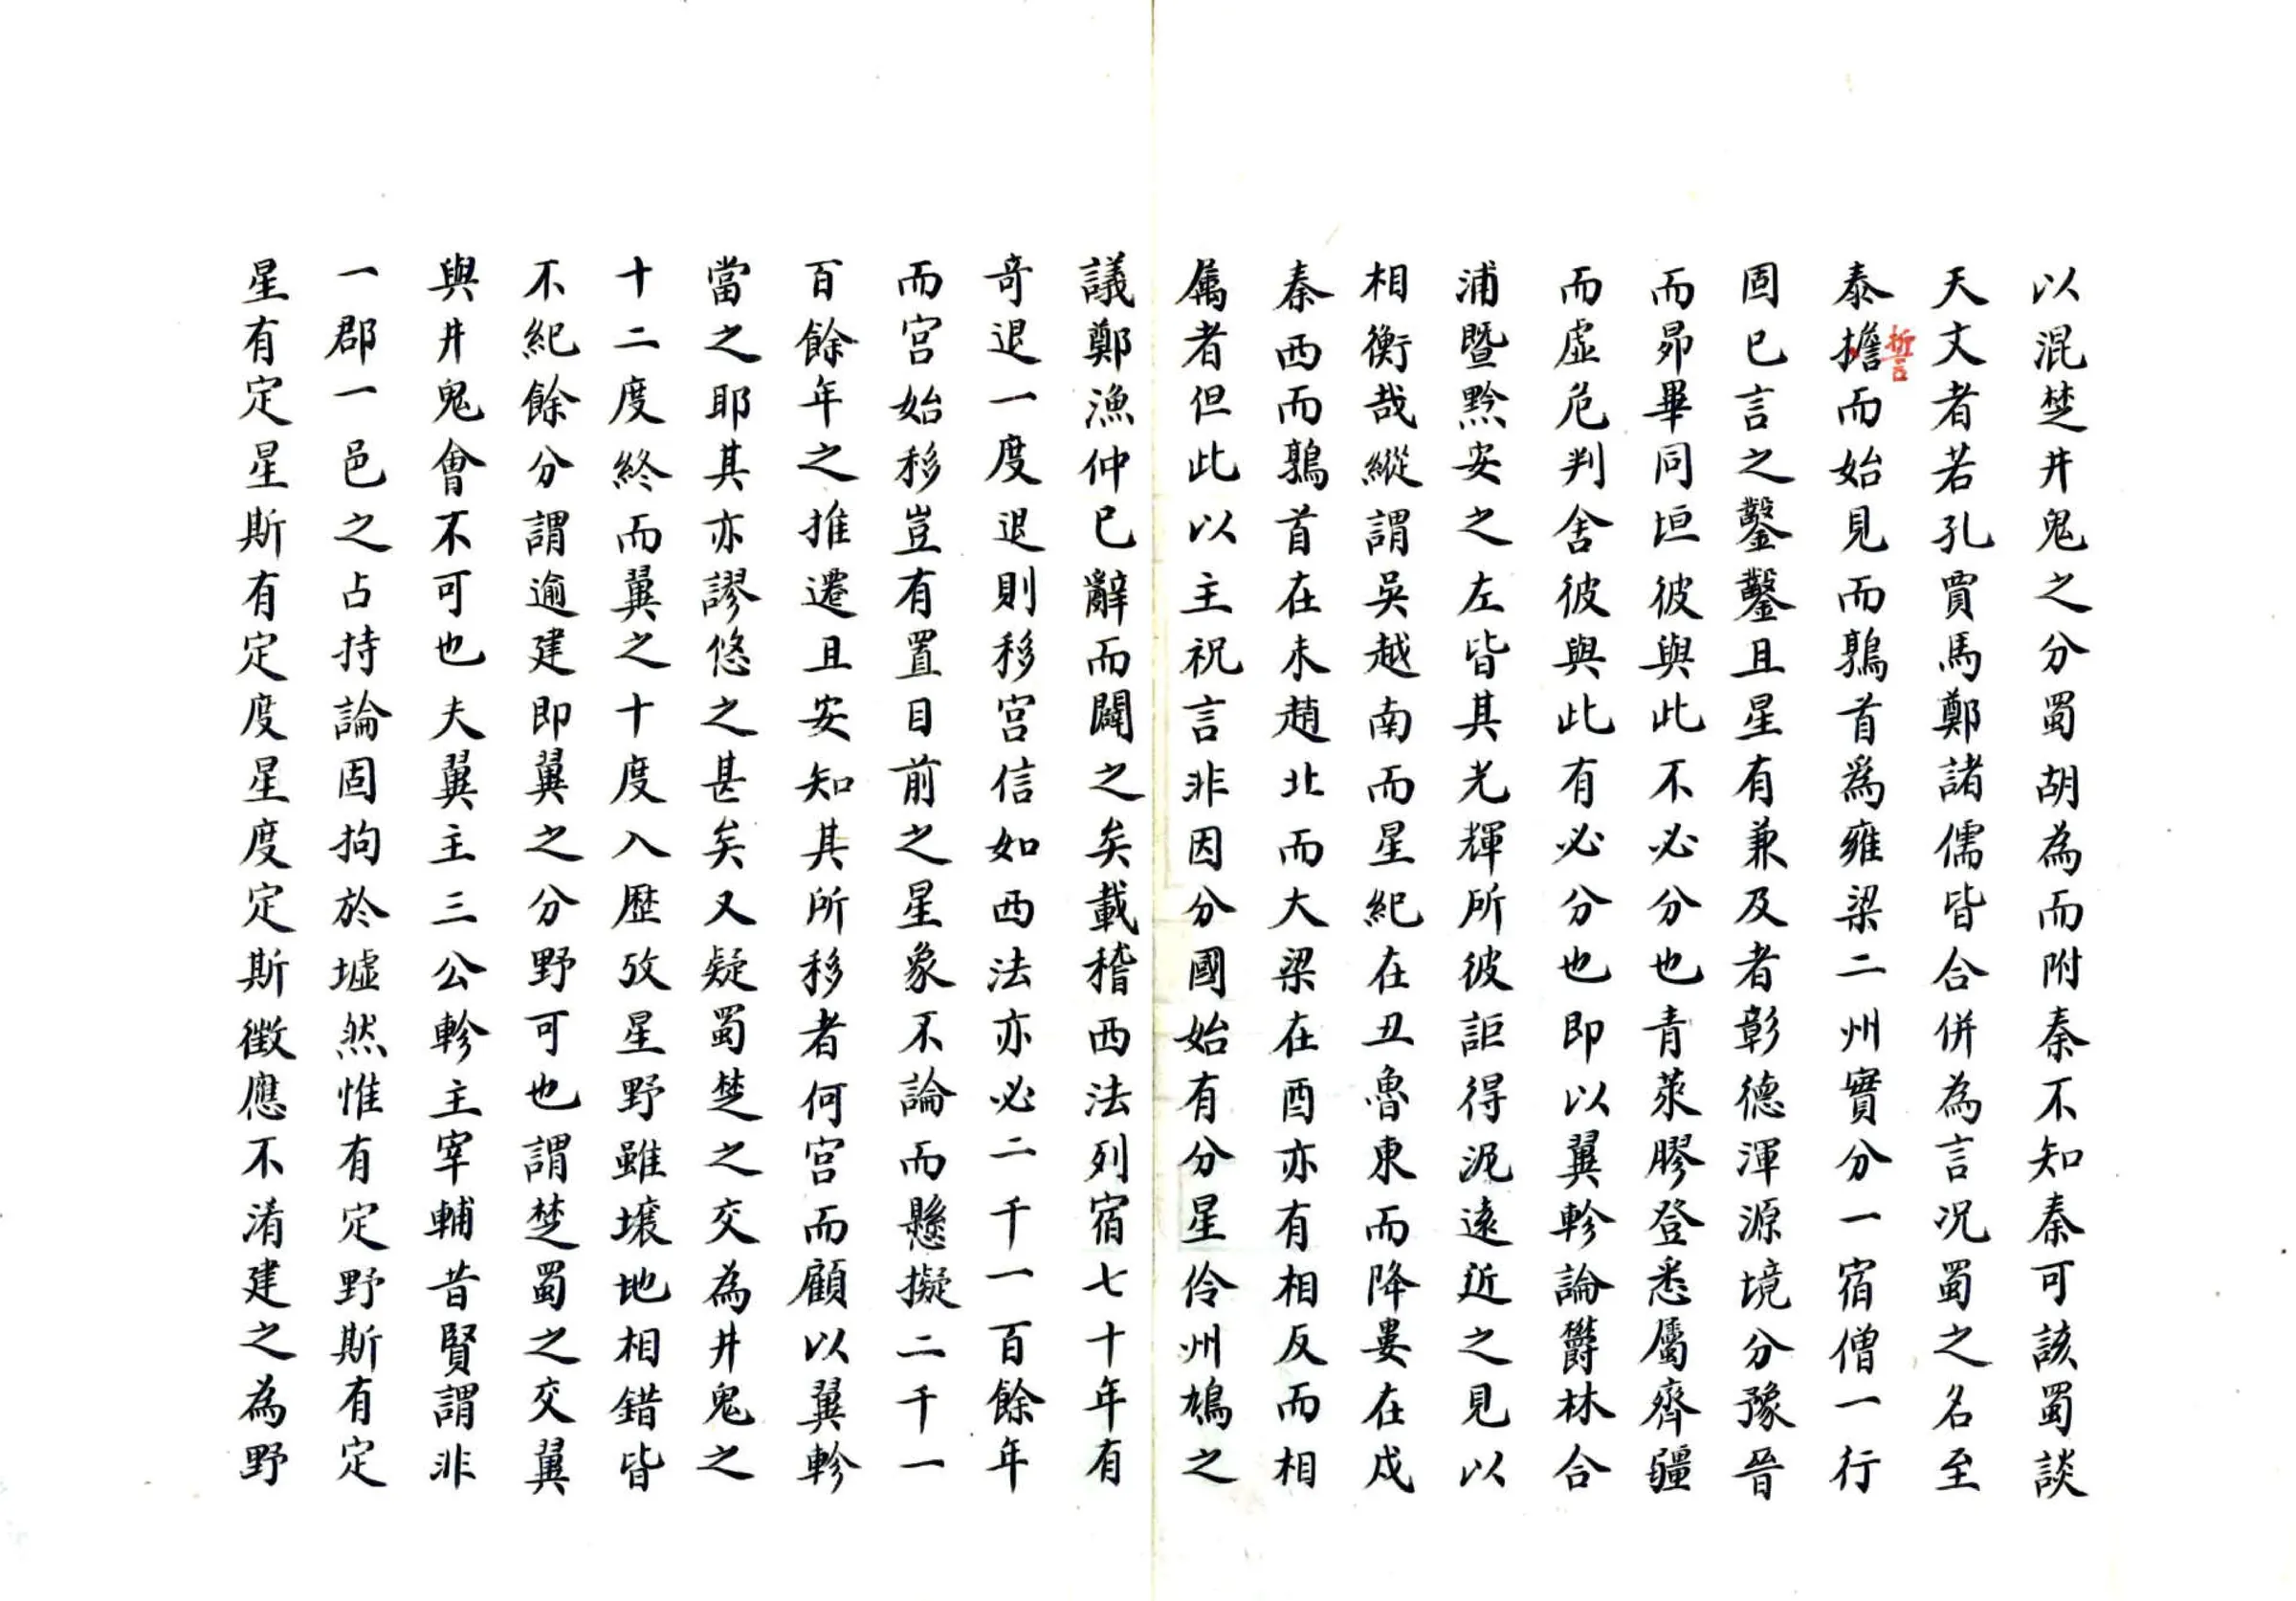 以混楚井鬼之分蜀胡為而附秦不知秦可該蜀談
天文者若孔賈馬鄭諸儒皆合併為言况蜀之名至
泰擔而始見而鶉首爲雍梁二州實分一宿僧一行
誓
固已言之鑿鑿且星有兼及者彰德渾源境分豫晉
而昴畢同垣彼與此不必分也青萊膠登悉屬齊疆
而虛危判舍彼與此有必分也即以翼軫論欝林合
浦暨黔安之左皆其光輝所彼詎得泥遠近之見以
相衡哉縱謂吳越南而星紀在丑魯東而降婁在戍
秦西而鶉首在未趙北而大梁在酉亦有相反而相
属者但此以主祝言非因分國始有分星伶州鳩之
議鄭漁仲已辭而闢之矣載稽西法列宿七十年有
奇退一度退則移宮信如西法亦必二千一百餘年
而宮始移豈有置目前之星象不論而懸擬二千一
百餘年之推遷且安知其所移者何宮而顧以翼軫
當之耶其亦謬悠之甚矣又疑蜀楚之交為井鬼之
十二度終而翼之十度入歷攷星野雖壤地相錯皆
不紀餘分謂逾建即翼之分野可也謂楚蜀之交翼
與井鬼會不可也夫翼主三公軫主宰輔昔賢謂非
一郡一邑之占持論固拘於墟然惟有定野斯有定
星有定星斯有定度星度定斯徵應不淆建之為野